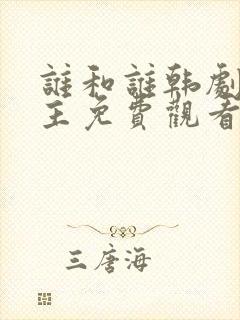 誰和誰韩劇
王免費觀看
三唐海